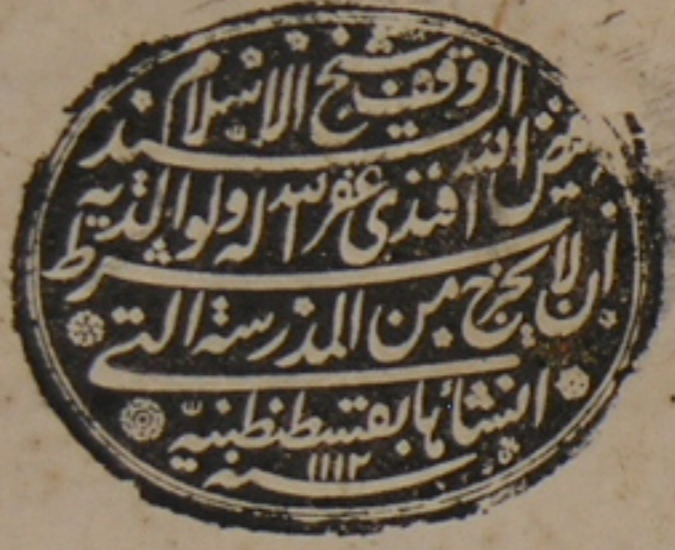 وقف شيخ الاسلام السيد
فيض الله افندى غفر الله له ولوالديه
بشرط ان لا يخرج من المدرسة التى
انشأها بقسطنطنيّة
سنة ١١١٢